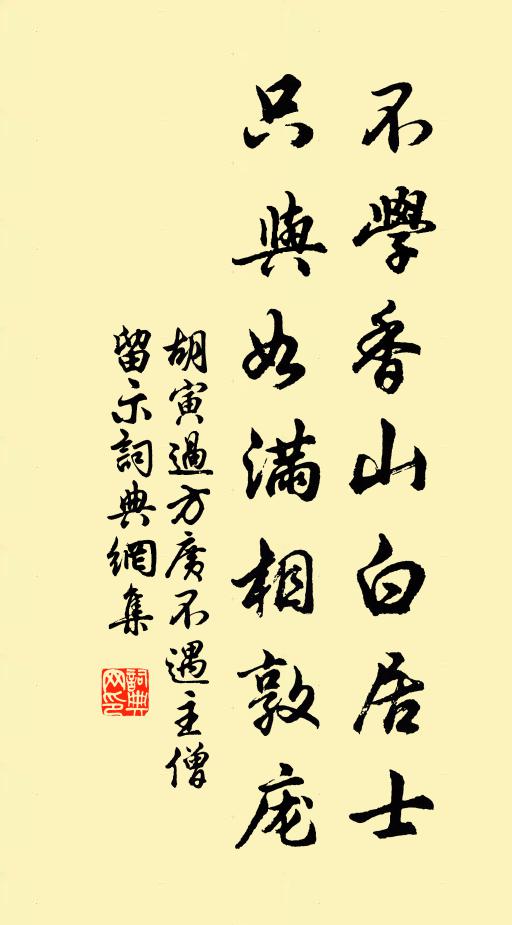 不學香山白居士
只與如滿相敦庞
胡寅過方廣不遇主僧
留示詞典網集
詞典網印